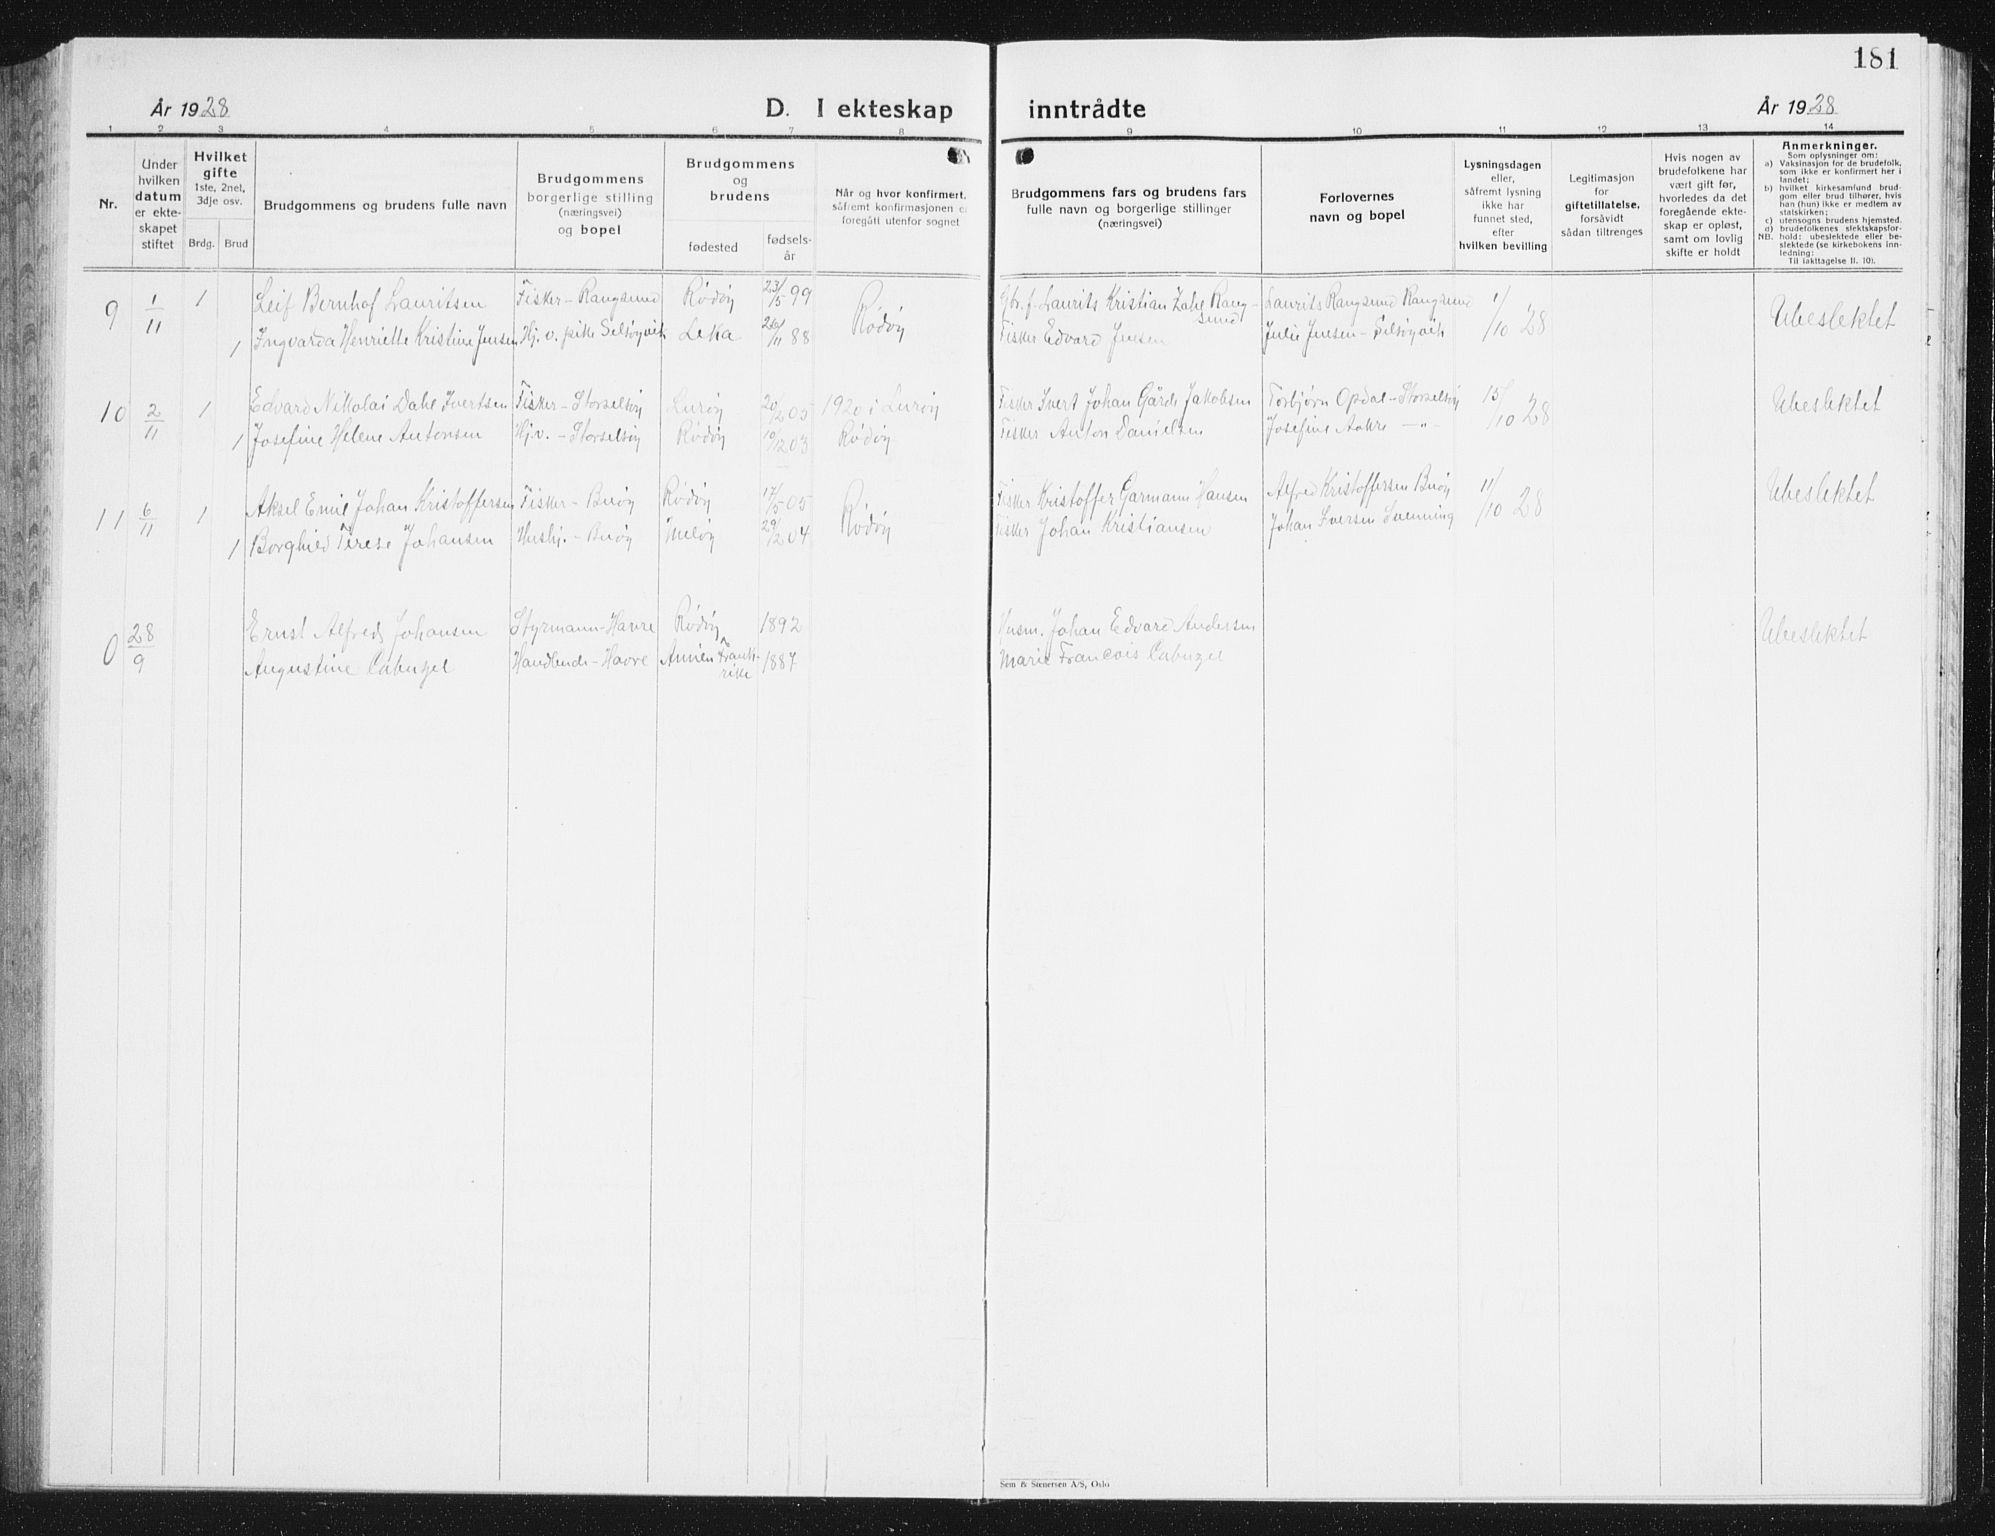 181
År 1928
D. I ekteskap inntrådte
År 1928
1 2 3 4 5 6 7 8 9 10 11 12 13 14
Nr.
Under hvilken datum er ekteskapet stiftet
Hvilket gifte
1ste, 2net, 3dje osv.
Brdg. Brud
Brudgommens og brudens fulle navn
Brudgommens borgerlige stilling (næringsvei) og bopel
Brudgommens og brudens
fødested
fødselsår
Når og hvor konfirmert,
såfremt konfirmasjonen e
foregått utenfor sognet
Brudgommens fars og brudens fars
fulle navn og borgerlige stillinger
(næringsvei)
Forlovernes
navn og bopel
Lysningsdagen
eller,
såfremt lysning
ikke har
funnet sted,
efter
hvilken bevilling
Legitimasjon
for
giftetillatelse,
forsåvidt
sådan tiltrenges
Hvis nogen av
brudefolkene har
vært gift før,
hvorledes da det
foregående ekte-
skap er opløst,
samt om lovlig
skifte er holdt
Anmerkninger.
Som oplysninger om:
a) Vaksinasjon for de brudefolk,
som ikke er konfirmert her i
landet;
b) hvilket kirkesamfund brud-
gom eller brud tilhører, hvis
han (hun) ikke er medlem av
statskirken;
c) utensogns brudens hjemsted.
d) brudefolkenes slektskapsfor-
NB. hold: ubeslektede eller be-
slektede (se kirkebokens inn-
ledning:
Til iakttagelse II. 10).
9 1/11 1 Leif Bernhof Lauritsen Fisker - Rangsund Rödöy 23/5 99 Rödöy Gbr. f. Laurits Kristian Zahl Rangsund Laurits Rangsund Rangsund 1/10 28 Ubeslektet
1 Ingvarda Henriette Kristine Jensen Hj. v. pike Selsöyvik Leka 26/11 88 Fisker Edvard Jensen Julie Jensen - Selsöyvik
10 2/11 1 Edvard Nikolai Dahl Ivertsen Fisker - Storselsöy Luröy 20/2 05 1920 i Luröy Fisker Ivert Johan Gärds Jakobsen Torbjörn Opdal - Storselsöy 15/10 28 Ubeslektet
1 Josefine Helene Antonsen Hj.v. - Storselsöy Rödöy 10/12 03 Rödöy Fisker Anton Danielsen Josefine Aakre - " -
11 6/11 1 Aksel Emil Johan Kristoffersen Fisker - Buöy Rödöy 17/5 05 Rödöy Fisker Kristoffer Garmann Hansen Alfred Kristoffersen Buöy 11/10 28 Ubeslektet
1 Borghild Terese Johansen Hushj. - Buöy Melöy 29/2 04 Fisker Johan Kristiansen Johan Iversen Svenning
0 28/9 Ernst Alfred Johansen Styrmann - Havre Rödöy 1892 Husm. Johan Edvard Andersen Ubeslektet
Augustine Cabuzel Handlende - Havre Frankrike 1887 Marie Francois Cabuzel
Sem & Stenersen A/S, Oslo